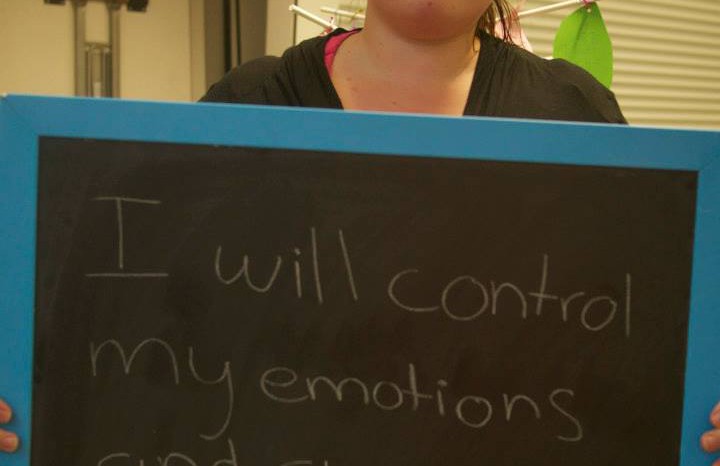 I will control
my emotions
and